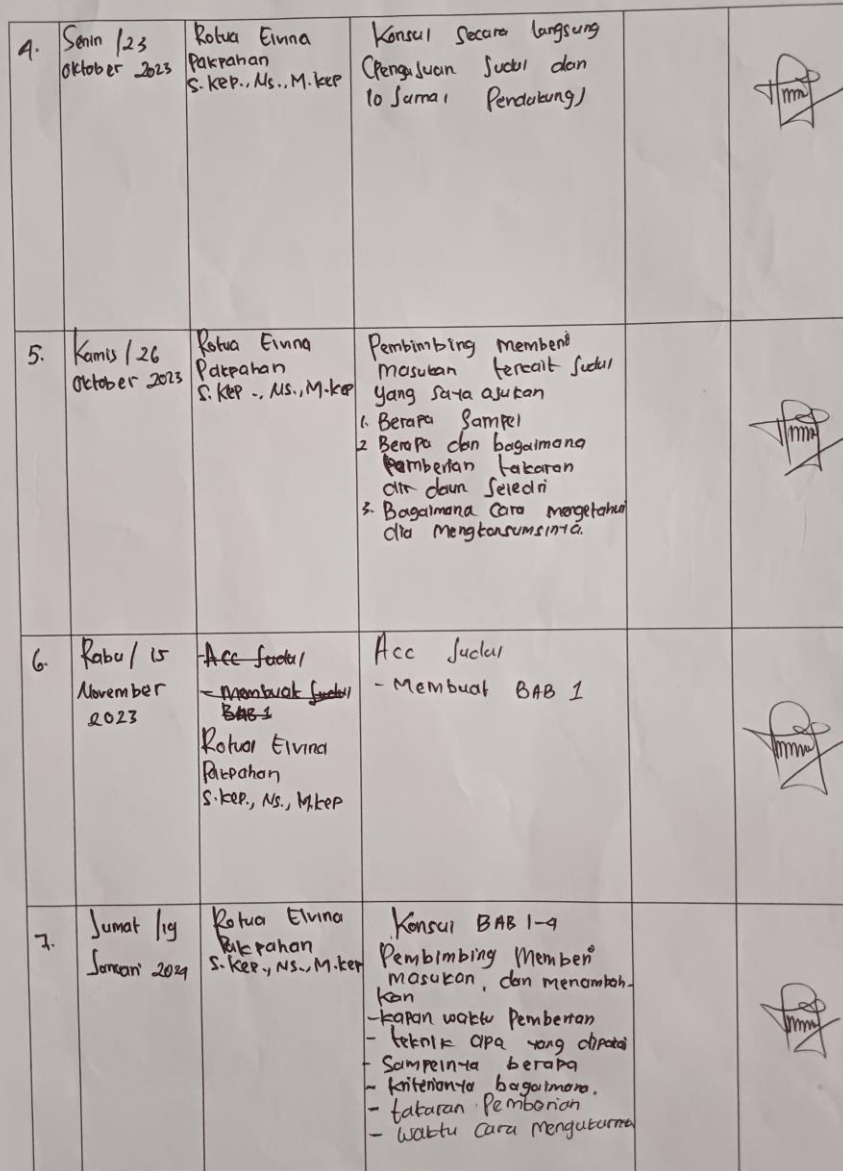 4.
Senin / 23
Oktober 2023
Rotua Elvina
Pakpahan
S.Kep., Ns., M.Kep
Konsul Secara langsung
(Pengajuan Judul dan
10 Jurnal Pendukung)
5.
Kamis / 26
Oktober 2023
Rotua Elvina
Pakpahan
S.Kep., Ns., M.Kep
Pembimbing Memberi
masukan terkait Judul
yang saya ajukan
1. Berapa Sampel
2 Berapa dan bagaimana
Pemberian takaran
air daun Seledri
3. Bagaimana Cara mengetahui
dia Mengkonsumsinya.
6.
Rabu / 15
November
2023
- Acc Judul
- Membuat Judul
BAB 1
Rotua Elvina
Pakpahan
S.Kep., Ns., M.Kep
Acc Judul
- Membuat BAB 1
7.
Jumat / 19
Januari 2024
Rotua Elvina
Pakpahan
S.Kep., Ns., M.Kep
Konsul BAB 1-4
Pembimbing Memberi
masukan, dan menambah-
kan
- kapan waktu Pemberian
- teknik apa yang dipakai
- Sampelnya berapa
- kriterianya bagaimana.
- takaran Pemberian
- waktu cara mengukurnya